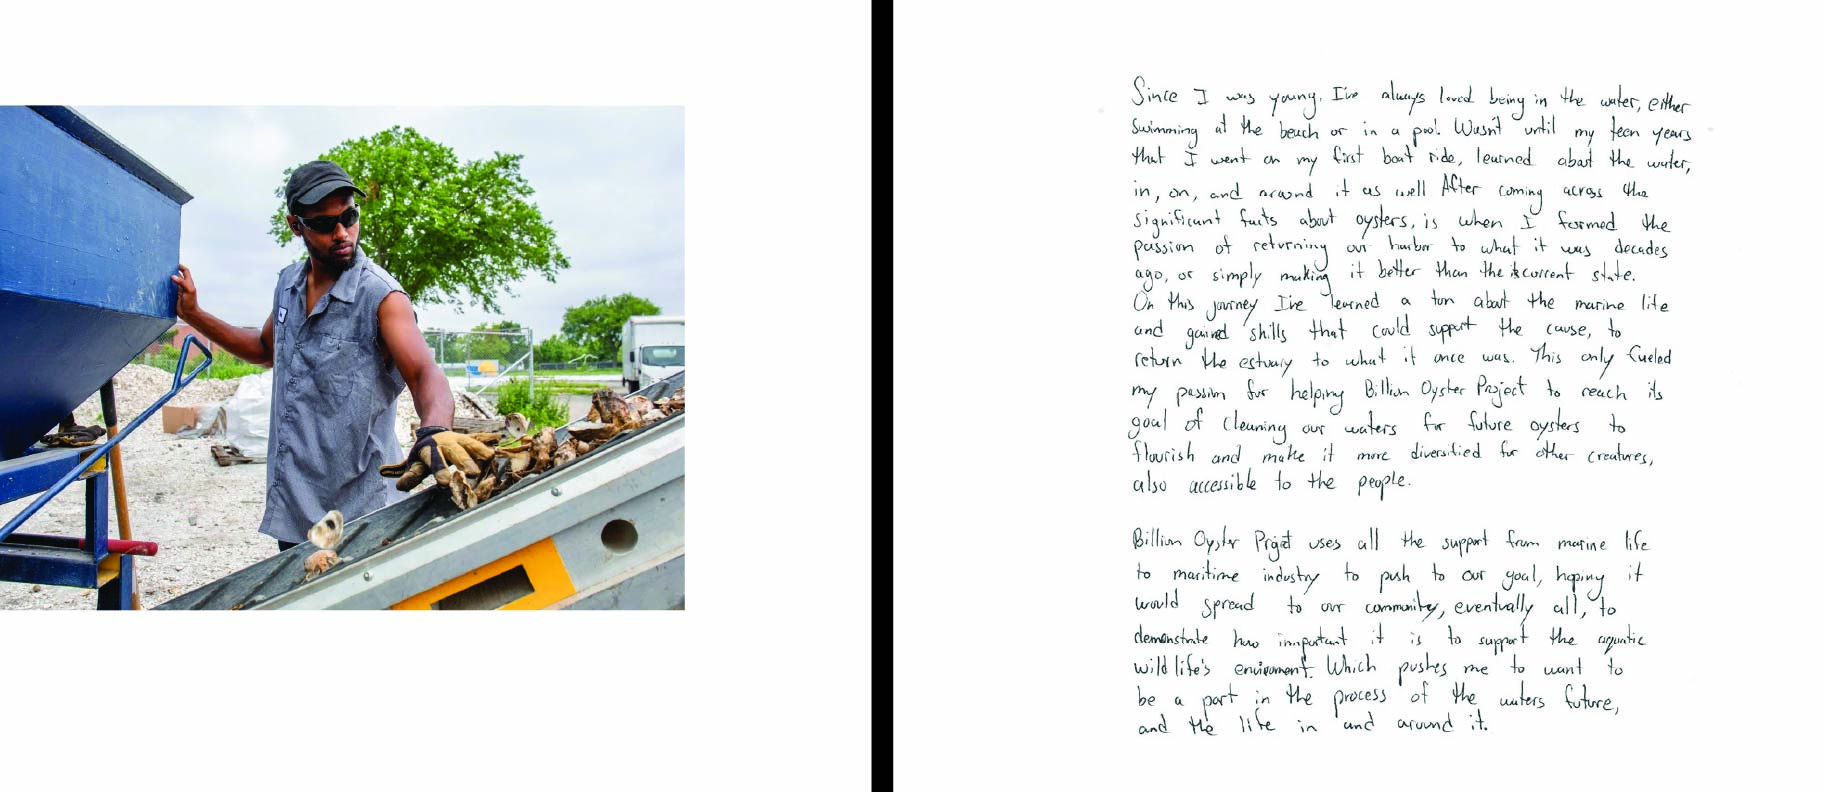 Since I was young, I've always loved being in the water, either
swimming at the beach or in a pool. Wasn't until my teen years
that I went on my first boat ride, learned about the water,
in, on, and around it as well After coming across the
significant facts about oysters, is when I formed the
passion of returning our harbor to what it was decades
ago, or simply making it better than the current state.
On this journey I've learned a ton about the marine life
and gained skills that could support the cause, to
return the estuary to what it once was. This only fueled
my passion for helping Billion Oyster Project to reach its
goal of cleaning our waters for future oysters to
flourish and make it more diversified for other creatures,
also accessible to the people.
Billion Oyster Projet uses all the support from marine life
to maritime industry to push to our goal, hoping it
would spread to our community, eventually all, to
demonstrate how important it is to support the aquatic
wildlife's enviroment. Which pushes me to want to
be a part in the process of the waters future,
and the life in and around it.